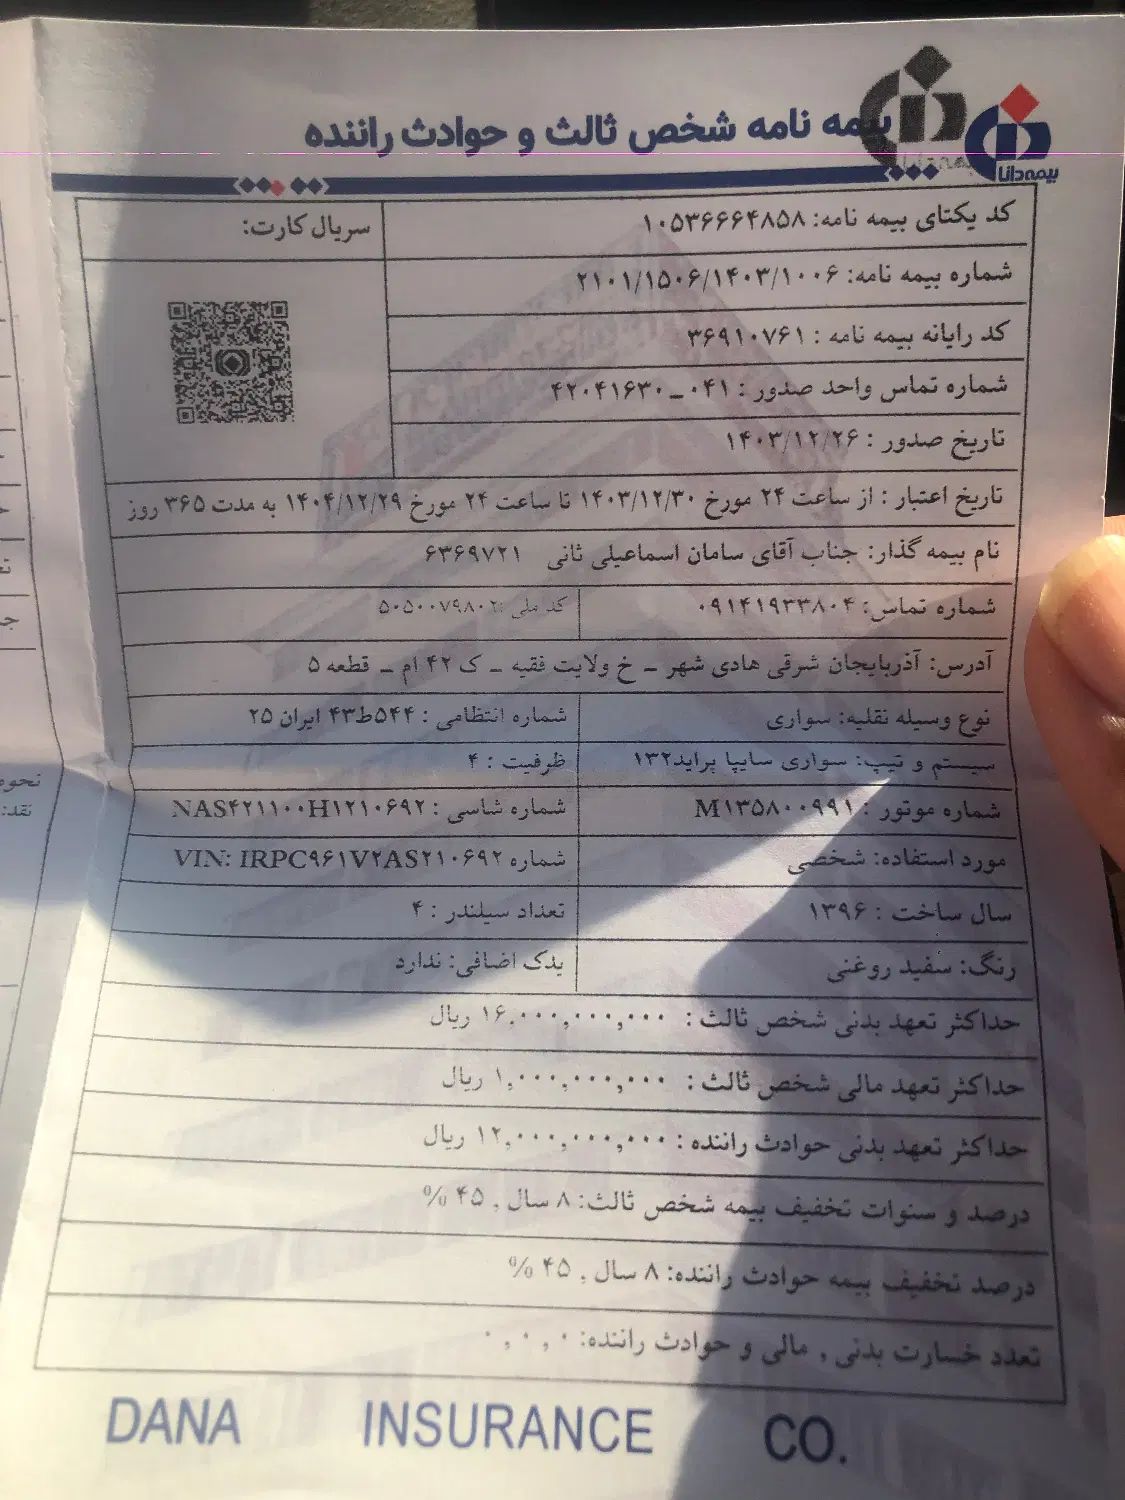 بیمه نامه شخص ثالث و حوادث راننده
بیمه دانا
کد یکتای بیمه نامه: ۱۰۵۳۶۶۶۴۸۵۸
سریال کارت:
شماره بیمه نامه: ۲۱۰۱/۱۵۰۶/۱۴۰۳/۱۰۰۶
کد رایانه بیمه نامه : ۳۶۹۱۰۷۶۱
شماره تماس واحد صدور : ۰۴۱ـ۴۲۰۴۱۶۳۰
تاریخ صدور : ۱۴۰۳/۱۲/۲۶
تاریخ اعتبار : از ساعت ۲۴ مورخ ۱۴۰۳/۱۲/۳۰ تا ساعت ۲۴ مورخ ۱۴۰۴/۱۲/۲۹ به مدت ۳۶۵ روز
نام بیمه گذار: جناب آقای سامان اسماعیلی ثانی ۶۳۶۹۷۲۱
شماره تماس: ۰۹۱۴۱۹۳۳۸۰۴ کد ملی :۵۰۵۰۰۷۹۸۰۲
آدرس: آذربایجان شرقی هادی شهر ـ خ ولایت فقیه ـ ک ۴۲ ام ـ قطعه ۵
نوع وسیله نقلیه: سواری شماره انتظامی : ۵۴۴ط۴۳ ایران ۲۵
سیستم و تیپ: سواری سایپا پراید۱۳۲ ظرفیت : ۴
شماره موتور : M۱۳۵۸۰۰۹۹۱ شماره شاسی : NAS۴۲۱۱۰۰H۱۲۱۰۶۹۲
مورد استفاده: شخصی شماره VIN: IRPC۹۶۱V۲AS۲۱۰۶۹۲
سال ساخت : ۱۳۹۶ تعداد سیلندر : ۴
رنگ: سفید روغنی یدک اضافی: ندارد
حداکثر تعهد بدنی شخص ثالث : ۱۶,۰۰۰,۰۰۰,۰۰۰ ریال
حداکثر تعهد مالی شخص ثالث : ۱,۰۰۰,۰۰۰,۰۰۰ ریال
حداکثر تعهد بدنی حوادث راننده : ۱۲,۰۰۰,۰۰۰,۰۰۰ ریال
درصد و سنوات تخفیف بیمه شخص ثالث: ۸ سال , ۴۵ %
درصد تخفیف بیمه حوادث راننده: ۸ سال , ۴۵ %
تعدد خسارت بدنی , مالی و حوادث راننده: ۰ , ۰ , ۰
DANA INSURANCE CO.
نحوه
نقد: